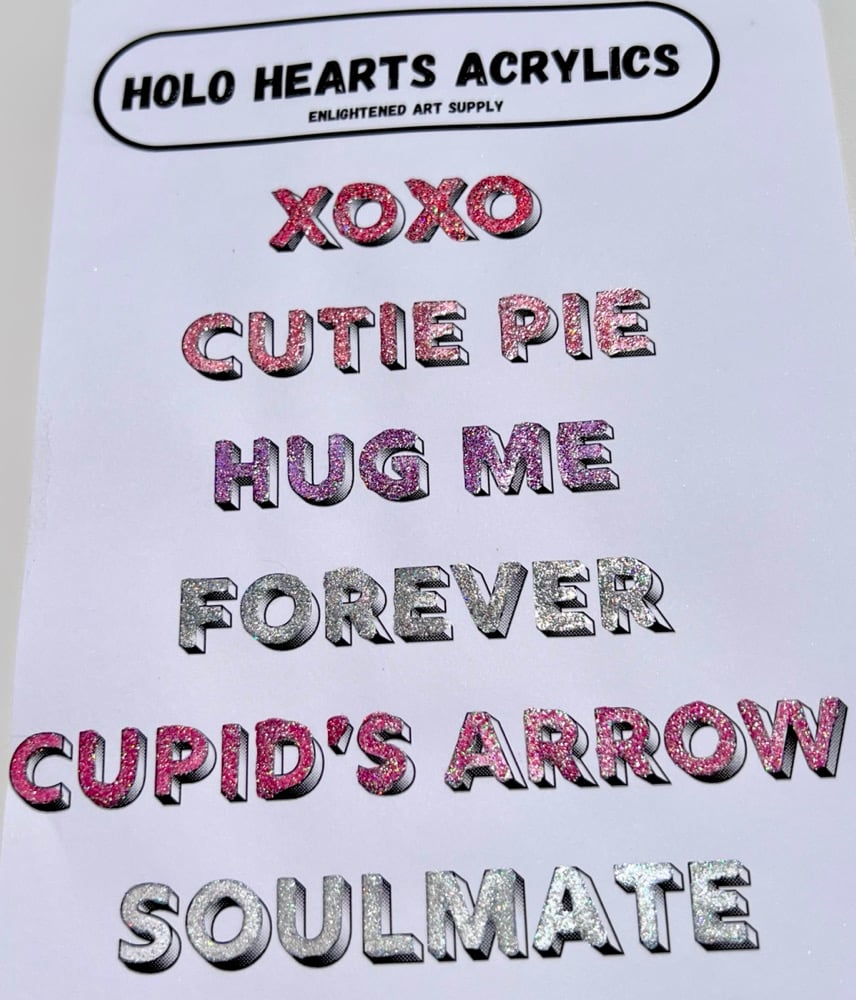 HOLO HEARTS ACRYLICS
ENLIGHTENED ART SUPPLY
XOXO
CUTIE PIE
HUG ME
FOREVER
CUPID'S ARROW
SOULMATE